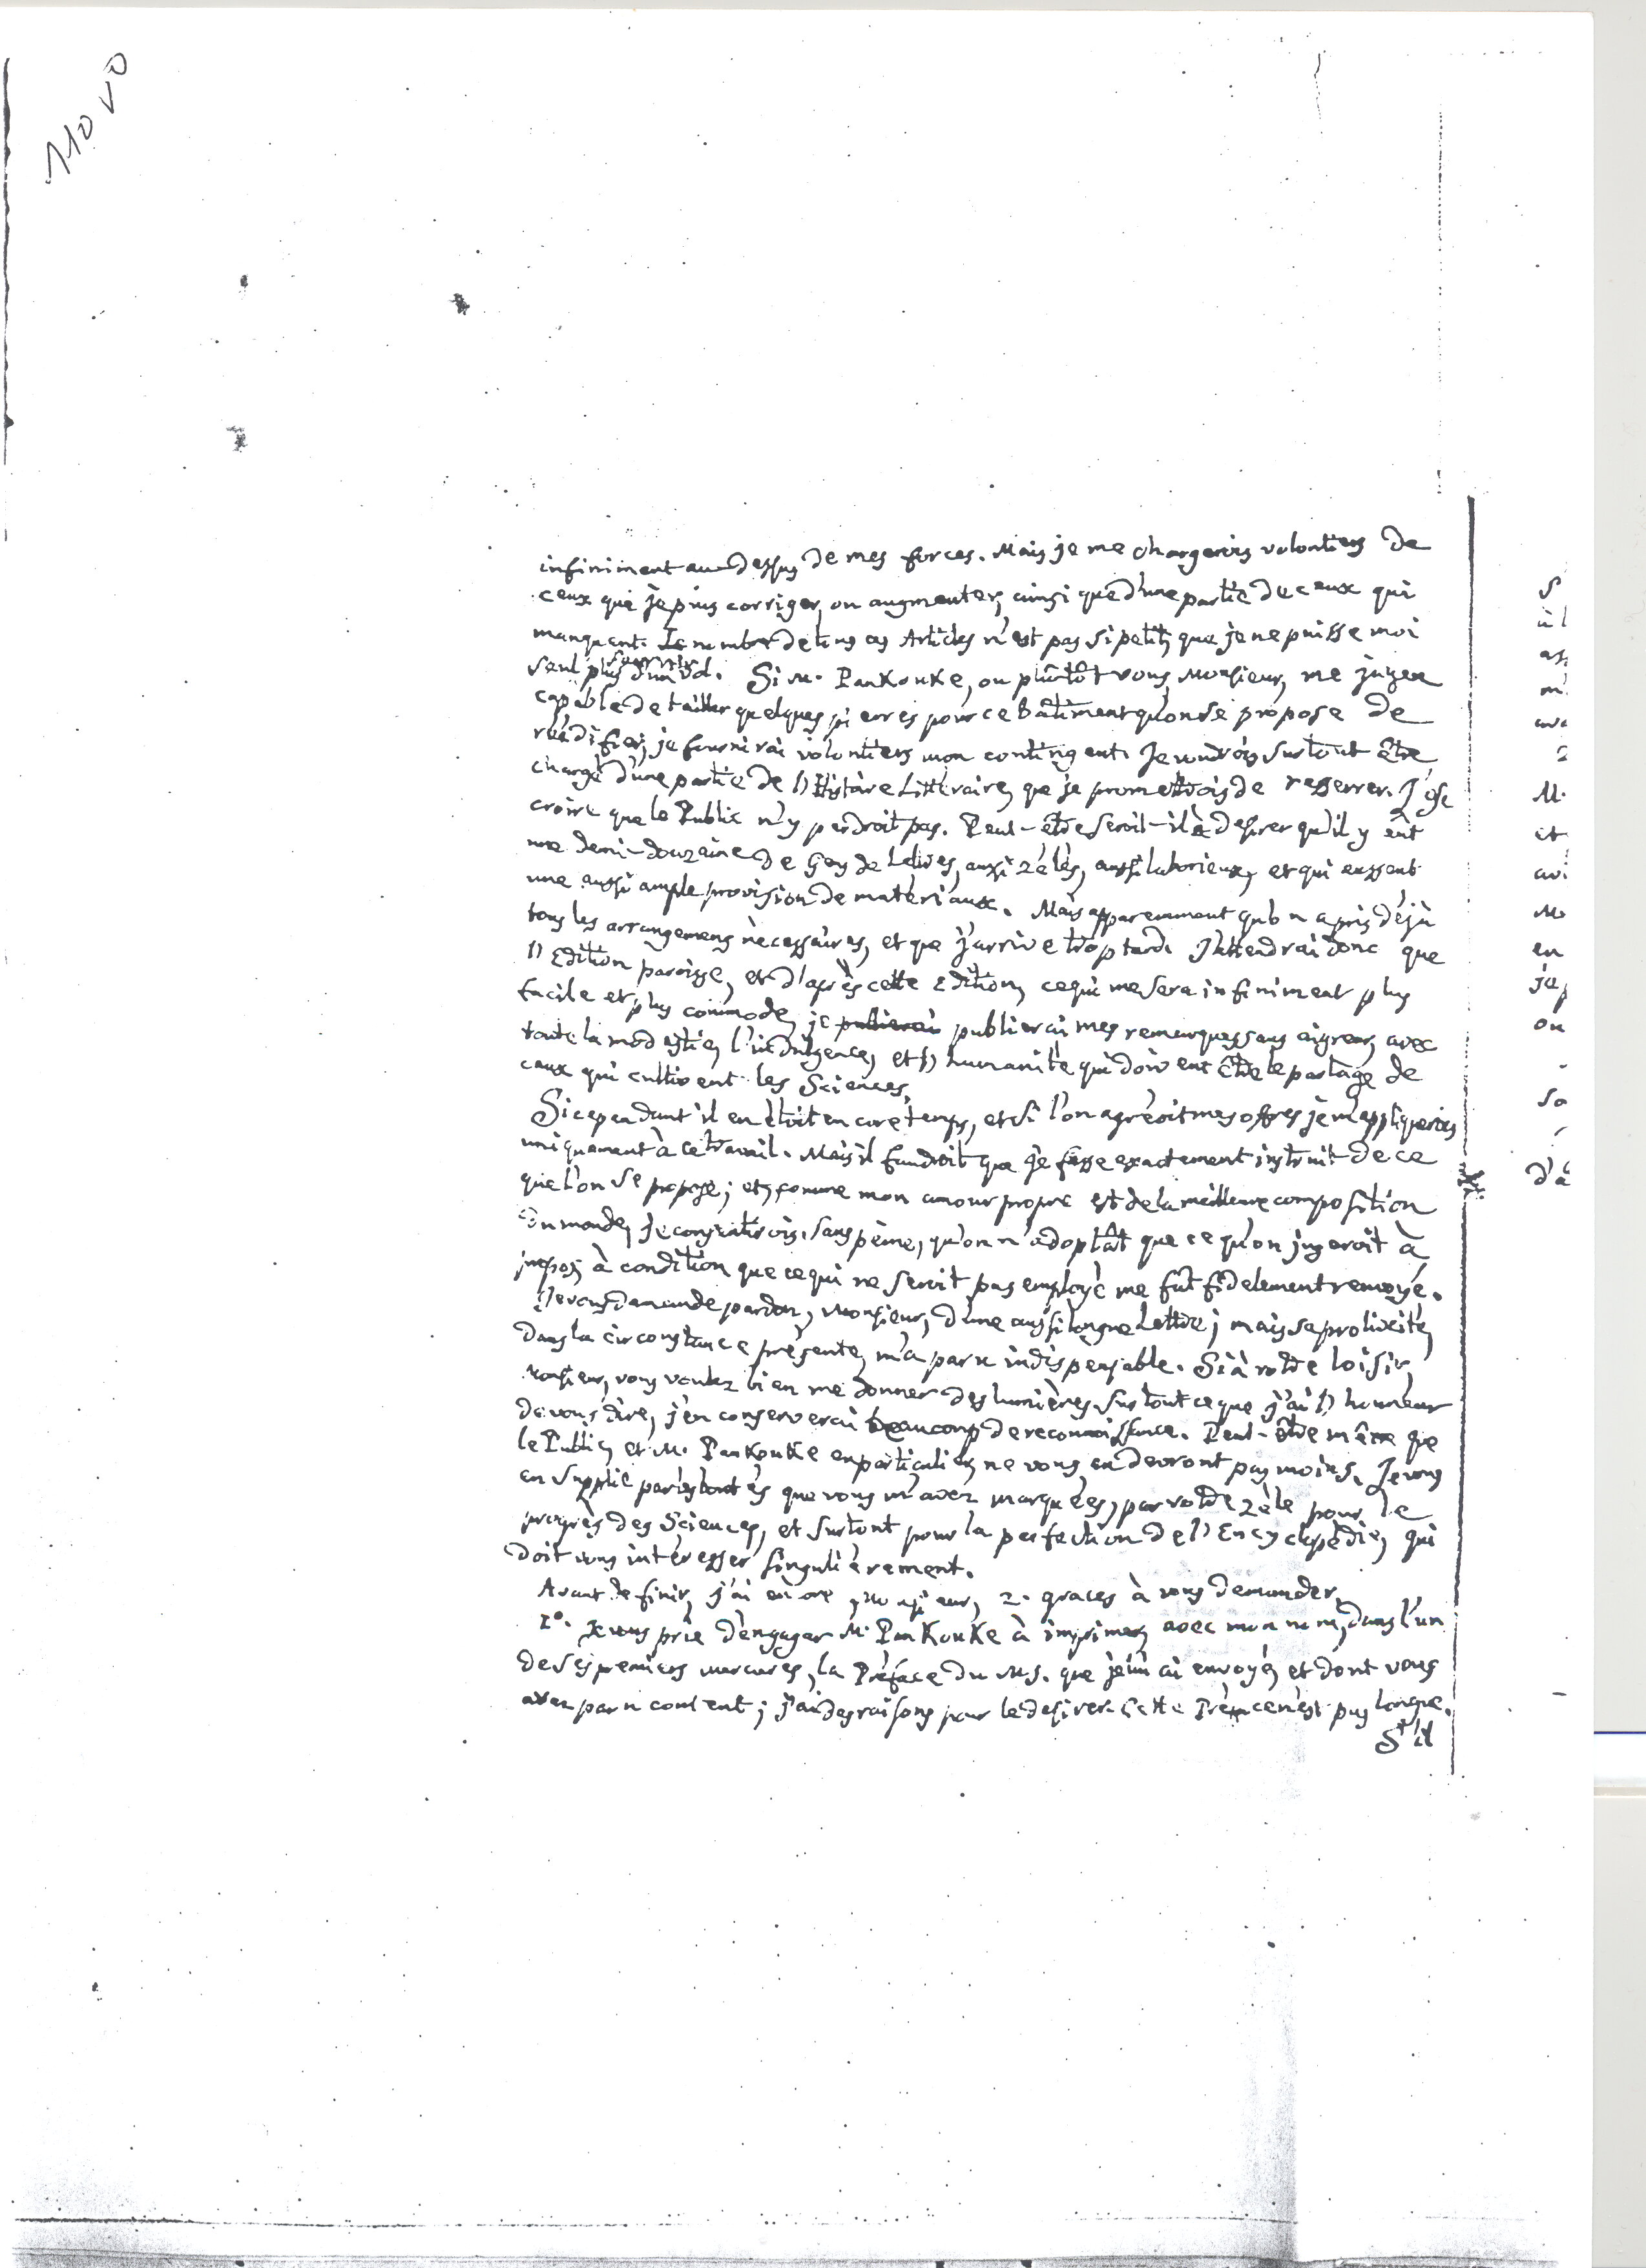 110 vo
infiniment au-dessus de mes forces. Mais je me chargerois volontiers de
ceux que je puis corriger, ou augmenter, ainsi que d'une partie de ceux qui
manquent. Le nombre de tous ces Articles n'est pas si petit, que je ne puisse moi
seul fournir plus d'un Vol. Si M. PanKouKe, ou plûtôt vous, Monsieur, me jugez
capable de tailler quelques pierres pour ce bâtiment qu'on se propose de
réédifier, je fournirai volontiers mon contingent. Je voudrois surtout être
chargé d'une partie de l'Histoire Littéraire, que je promettrois de resserrer. J'ose
croire que le Public n'y perdroit pas. Peut-être seroit-il à desirer qu'il y eût
une demi-douzaine de Gens de Lettres, aussi zélés, aussi laborieux, et qui eussent
une aussi ample provision de matériaux. Mais apparemment qu'on a pris déjà
tous les arrangemens nécessaires, et que j'arrive trop tard. J'attendrai donc que
l'Edition paroisse, et d'après cette Edition, ce qui me sera infiniment plus
facile et plus commode, je publierai publierai mes remarques sans aigreur, avec
toute la modestie, l'indulgence, et l'humanité qui doivent être le partage de
ceux qui cultivent les Sciences.
Si cependant il en étoit encore temps, et si l'on agréoit mes offres je m'appliquerois
uniquement à ce travail. Mais il faudroit que je fusse exactement instruit de ce
que l'on se propose; et, comme mon amour propre est de la meilleure composition
du monde, je consentirois, sans peine, qu'on n'adoptât que ce qu'on jugeroit à
propos, à condition que ce qui ne seroit pas employé me fût fidelement renvoyé.
Je vous demande pardon, Monsieur, d'une aussi longue Lettre; mais sa prolixité,
dans la circonstance présente, m'a paru indispensable. Si à votre loisir,
Monsieur, vous voulez bien me donner des lumières sur tout ce que j'ai l'honneur
de vous dire, j'en conserverai beaucoup de reconnoissance. Peut-être même que
le Public, et M. PanKouKe en particulier, ne vous en devront pas moins. Je vous
en supplie par les bontés que vous m'avez marquées, par votre zèle pour le
progrès des Sciences, et surtout pour la perfection de l'Encyclopédie, qui
doit vous intéresser singulièrement.
Avant de finir, j'ai encore, Monsieur, 2. graces à vous demander,
1°. Je vous prie d'engager M. PanKouKe à imprimer, avec mon nom, dans l'un
de ses premiers Mercures, la Préface du M.S. que je lui ai envoyé, et dont vous
avez paru content; j'ai des raisons pour le desirer. Cette Préface n'est pas longue.
S'il